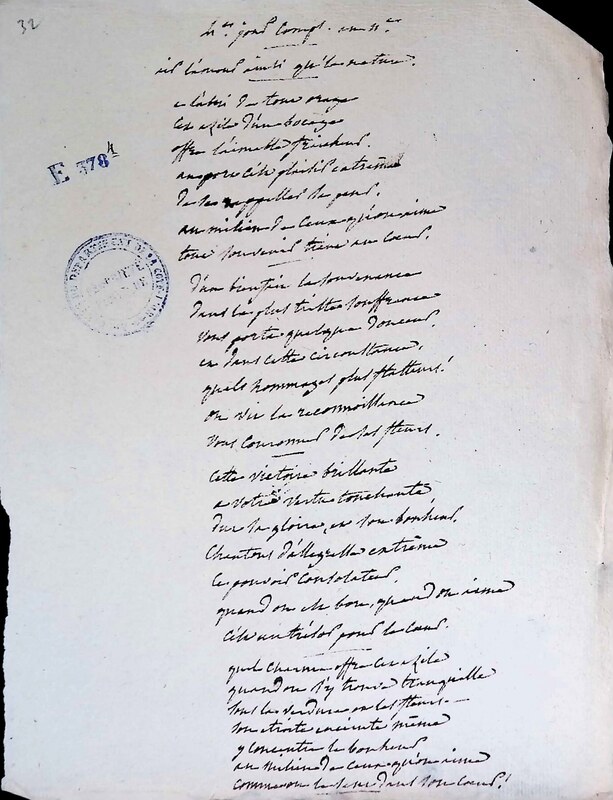 32
4.er jour Compl. an 11.e
air l'amour ainsi que la nature.
E 378 4
a l'abri de tout orage
Cet azile d'un bocage
offre l'aimable fraicheur.
au milieu de ceux qu'on aime
tout souvenir tient au cœur.
d'un bienfait la souvenance
dans la plus triste souffrance
vous porte quelque douceur.
et dans cette circonstance,
quels hommages plus flatteurs!
on vit la reconnoissance
vous couronner de ses fleurs.
Cette victoire brillante
a votre vertu touchante
dut sa gloire, et son bonheur.
Chantons d'allegresse extrême
Ce pouvoir consolateur.
quand on est bon, quand on aime
c'est un trésor pour le cœur.
quel charme offre cet azile
quand on s'y trouve tranquille
sous la verdure et les fleurs.
son etroite enceinte même
y concentre le bonheur
au milieu de ceux qu'on aime
comme on le sent dans son cœur!